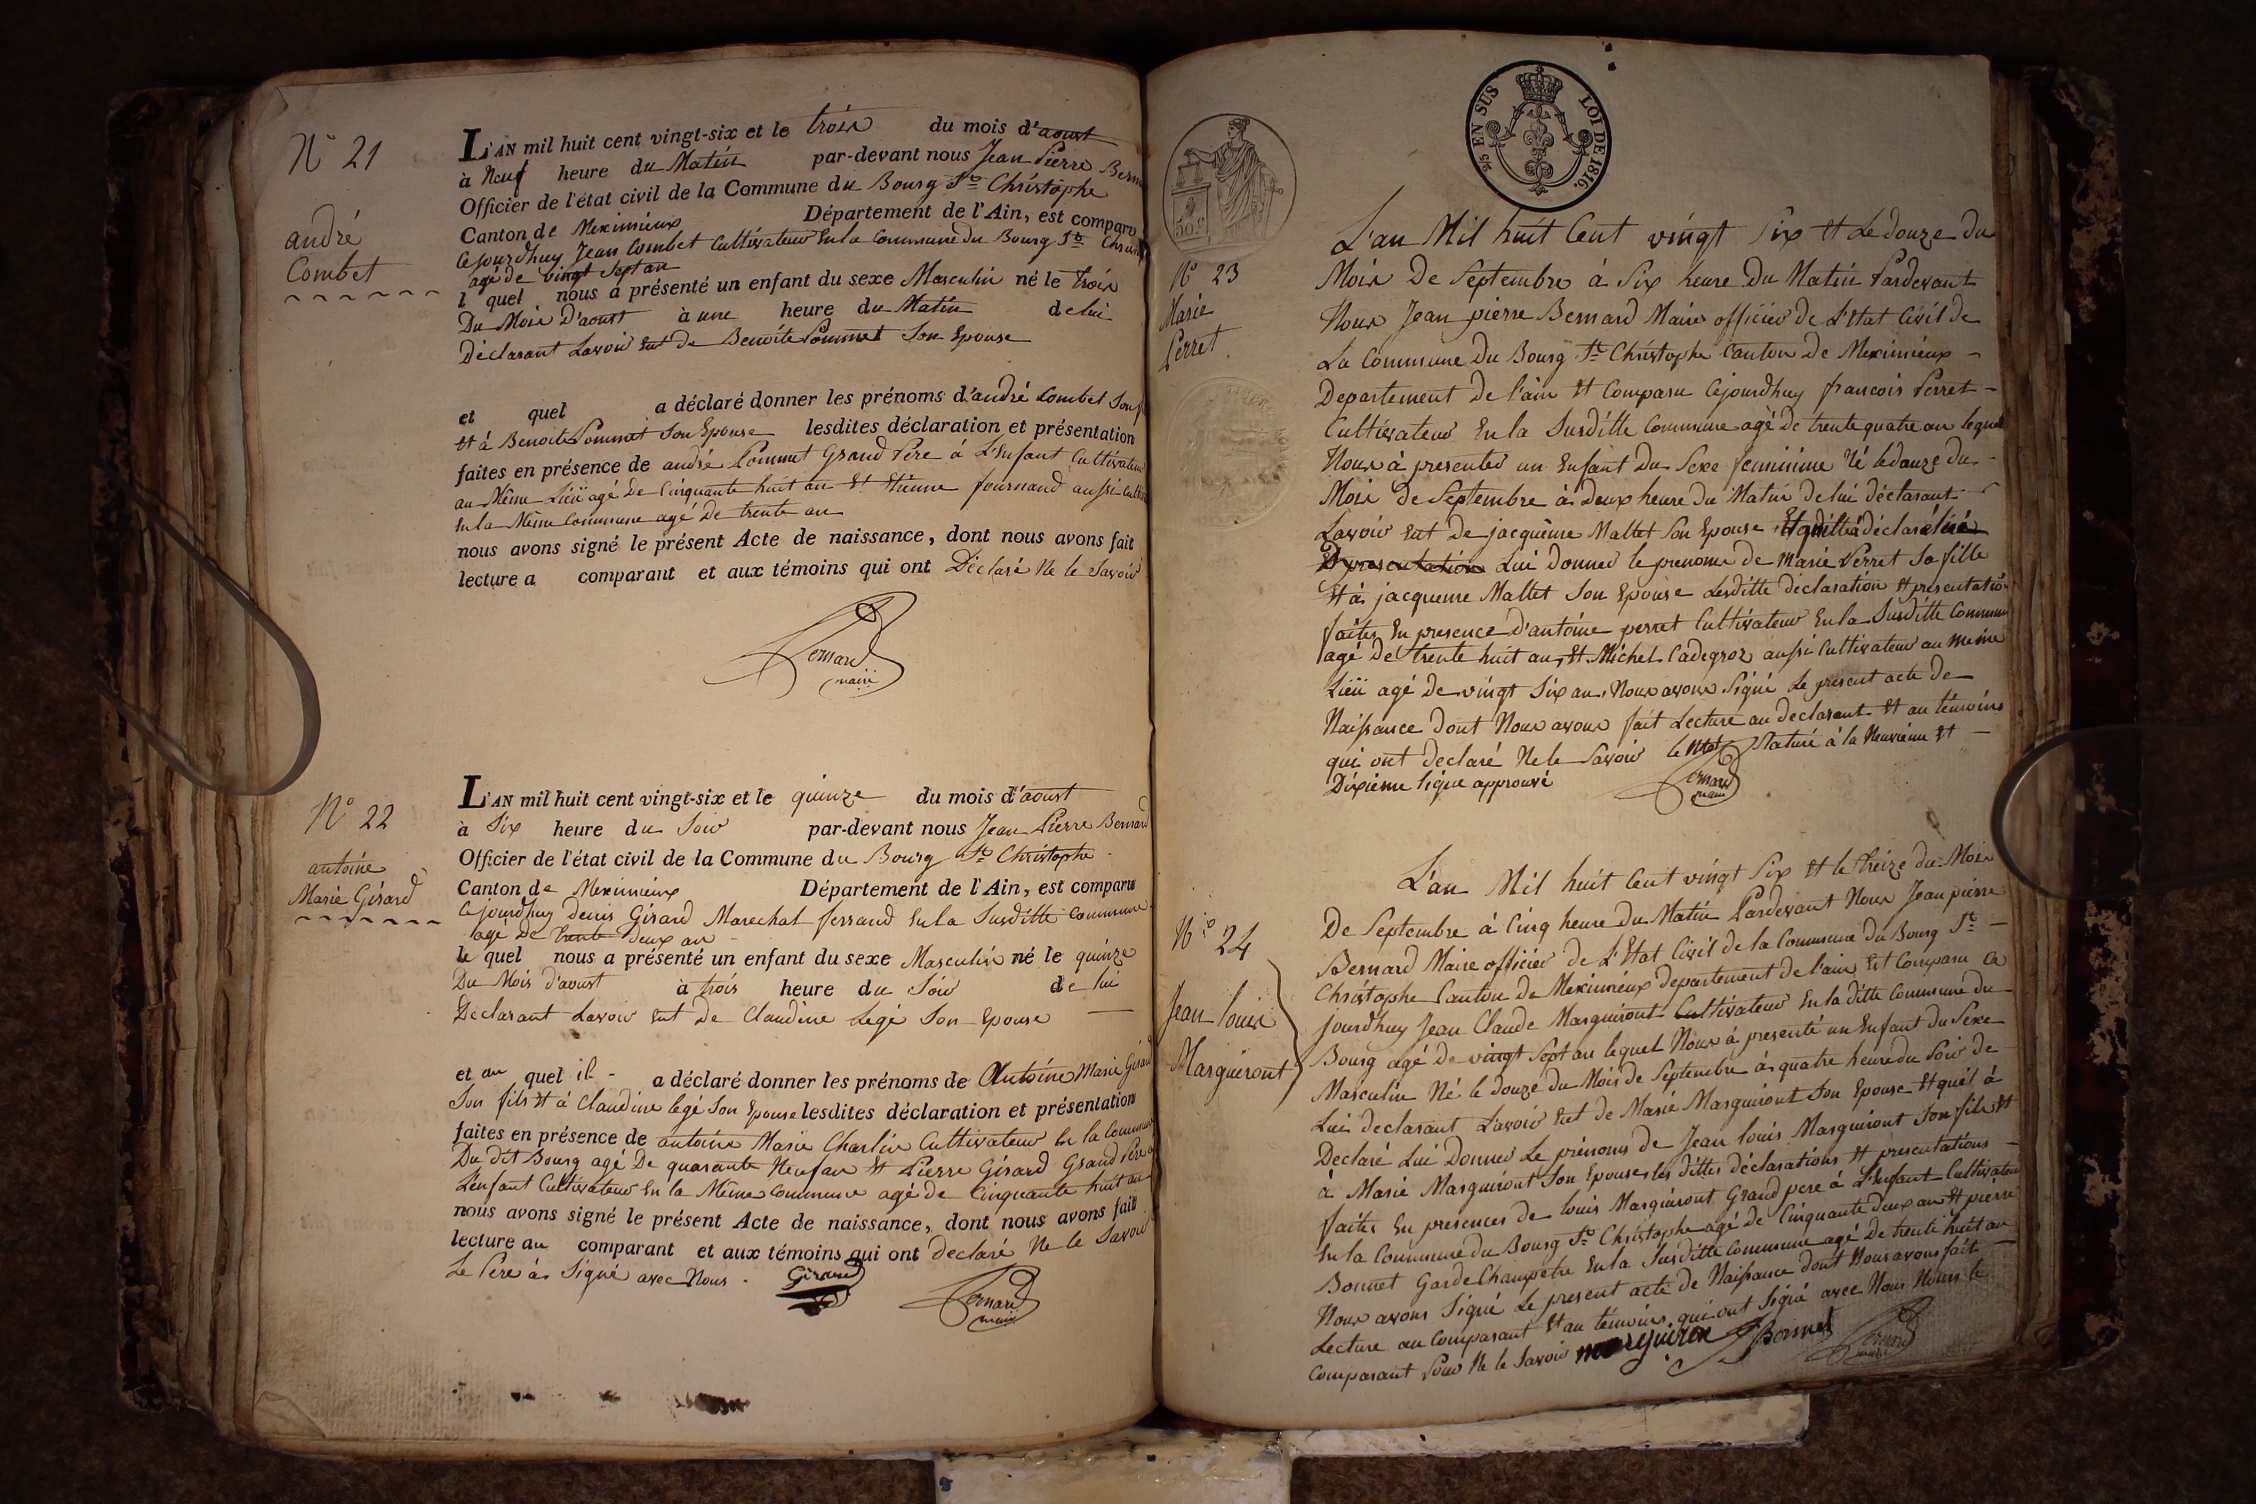 N° 21
andré
Combet
L'AN mil huit cent vingt-six et le trois du mois d'aoust
à Neuf heure du Matin par-devant nous Jean Pierre Bern
Officier de l'état civil de la Commune du Bourg St Christophe
Canton de Meximieux Département de l'Ain, est comparu
Cejourdhuy Jean Combet Cultivateur En la Commune du Bourg St
agé de vingt Sept an
l quel nous a présenté un enfant du sexe Masculin né le trois
Du Mois D'aoust à une heure du Matin de lui
Déclarant Lavoir Eut de Benoite Pommet Son Epouse
et quel a déclaré donner les prénoms d'andré Combet Son
Et à Benoite Pommet Son Epouse lesdites déclaration et présentation
faites en présence de andré Pommet Grand Pére à L'Enfant Cultivateur
au Même Lieü agé De Cinquante huit an Et Etienne fournand aussi
En la Même Commune agé De trente an
nous avons signé le présent Acte de naissance, dont nous avons fait
lecture a comparant et aux témoins qui ont Déclaré Ne le Savoir
Bernard
maire
N° 22
antoine
Marie Girard
L'AN mil huit cent vingt-six et le quinze du mois d'aoust
à Six heure du Soir par-devant nous Jean Pierre Bernard
Officier de l'état civil de la Commune du Bourg St Christophe
Canton de Meximieux Département de l'Ain, est comparu
Cejourdhuy Denis Girard Marechal ferrand En la Susditte Commune
agé De trente Deux an
le quel nous a présenté un enfant du sexe Masculin né le quinze
Du Mois d'aoust à trois heure du Soir de lui
Declarant Lavoir Eut De Claudine Legé Son Epouse
et au quel il a déclaré donner les prénoms de Antoine Marie Girard
Son fils Et à Claudine legé Son Epouse lesdites déclaration et présentation
faites en présence de antoine Marie Charlin Cultivateur En la Commune
Du dit Bourg agé De quarante Neuf an Et Pierre Girard Grand Pere a
L'enfant Cultivateur En la Même Commune agé de Cinquante huit an
nous avons signé le présent Acte de naissance, dont nous avons fait
lecture au comparant et aux témoins qui ont declaré Ne le Savoir
Le Pere à Signé avec Nous. Girard Bernard
maire
25 EN SUS LOI DE 1816.
50 c
N° 23
Marie
Perret
L'an Mil huit Cent vingt Six Et Le douze Du
Mois De Septembre à Six heure Du Matin Pardevant
Nous Jean pierre Bernard Maire officier de L'Etat Civil de
La Commune Du Bourg St Christophe Canton De Meximieux
Departement De l'ain Et Comparu Cejourdhuy francois Perret
Cultivateur En la Susditte Commune agé De trente quatre an lequel
Nous à presenter un Enfant Du Sexe feminime Né le douze du
Mois De Septembre à Deux heure Du Matin De lui déclarant
Lavoir Eut De jacqueme Mallet Son Epouse Et déclaré
presentation Lui Donner le prenome De Marie Perret Sa fille
Et à jacqueme Mallet Son Epouse Lesditte déclaration Et présentation
faites En presence D'antoine perret Cultivateur En la Susditte Commune
agé De trente huit an, Et Michel Cadegros aussi Cultivateur au même
Lieü agé De vingt Six an, Nous avons Signé Le present acte De
Naissance dont Nous avons fait Lecture au declarant Et au témoins
qui ont Declaré Ne le Savoir le à la Neuvieme Et
Dixieme ligne approuvé Bernard
maire
N° 24
Jean louis
Marguiront
L'an Mil huit Cent vingt Six Et le treize du Mois
De Septembre à Cinq heure Du Matin Pardevant Nous Jean pierre
Bernard Maire officier De L'Etat Civil de la Commune du Bourg St
Christophe Canton De Meximieux departement de l'ain Est Comparu Ce
jourdhuy Jean Claude Marguiront Cultivateur En la ditte Commune du
Bourg agé De vingt Sept an lequel Nous à presenté un Enfant du Sexe
Masculin Né le douze du Mois de Septembre à quatre heure du Soir de
Lui declarant L'avoir Eut de Marie Marguiront Son Epouse Et quél à
Declaré Lui Donner Le prénoms de Jean louis Marguiront Son fils Et
à Marie Marguiront Son Epouse, les dittes déclarations Et presentations
faites En presences de louis Marguiront Grand pere à L'enfant Cultivateur
En la Commune du Bourg St Christophe agé de Cinquante deux an Et pierre
Bonnet Garde Champetre En la Susditte Commune agé De trente huit an
Nous avons Signé Le present acte de Naissance dont Nous avons fait
Lecture au Comparant Et au témoins, qui ont Signé avec Nous Nouns le
Comparant Pour Ne le Savoir marguiron Bonnet Bernard
maire